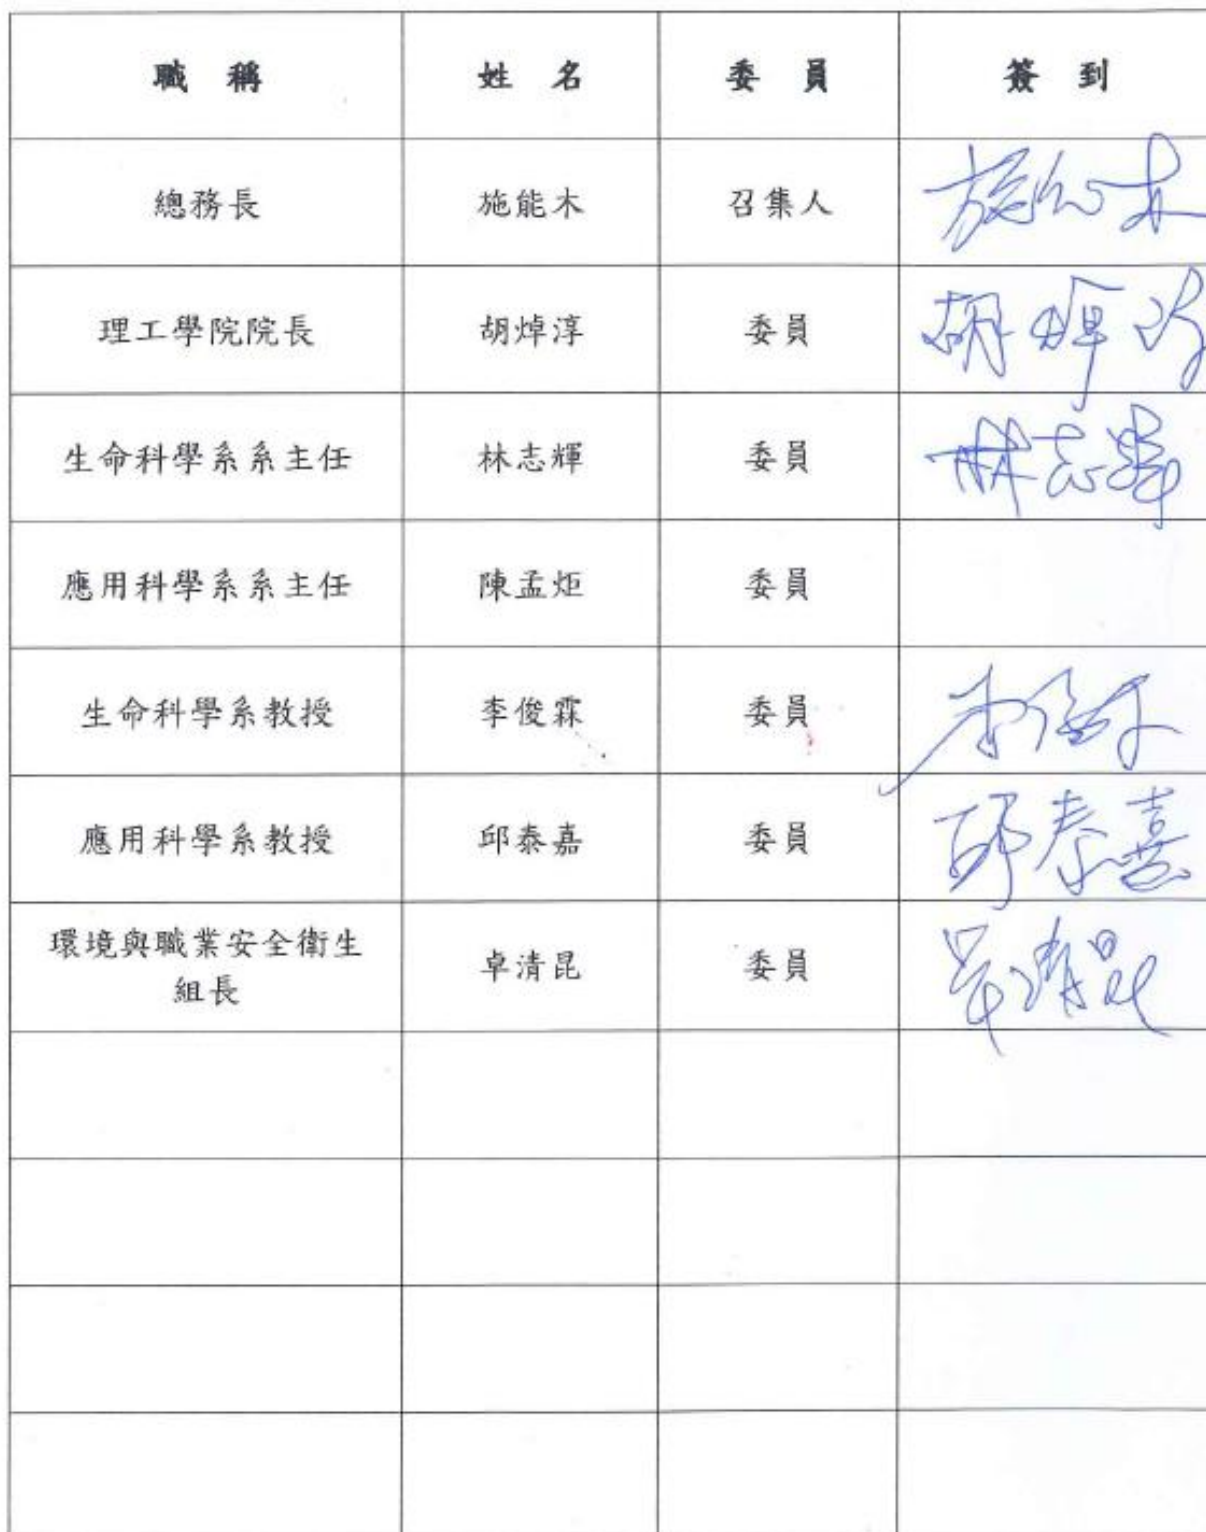 職稱 姓名 委員 簽到
總務長 施能木 召集人 施能木
理工學院院長 胡焯淳 委員 胡焯淳
生命科學系系主任 林志輝 委員 林志輝
應用科學系系主任 陳孟炬 委員
生命科學系教授 李俊霖 委員 李俊霖
應用科學系教授 邱泰嘉 委員 邱泰嘉
環境與職業安全衛生
組長 卓清昆 委員 卓清昆